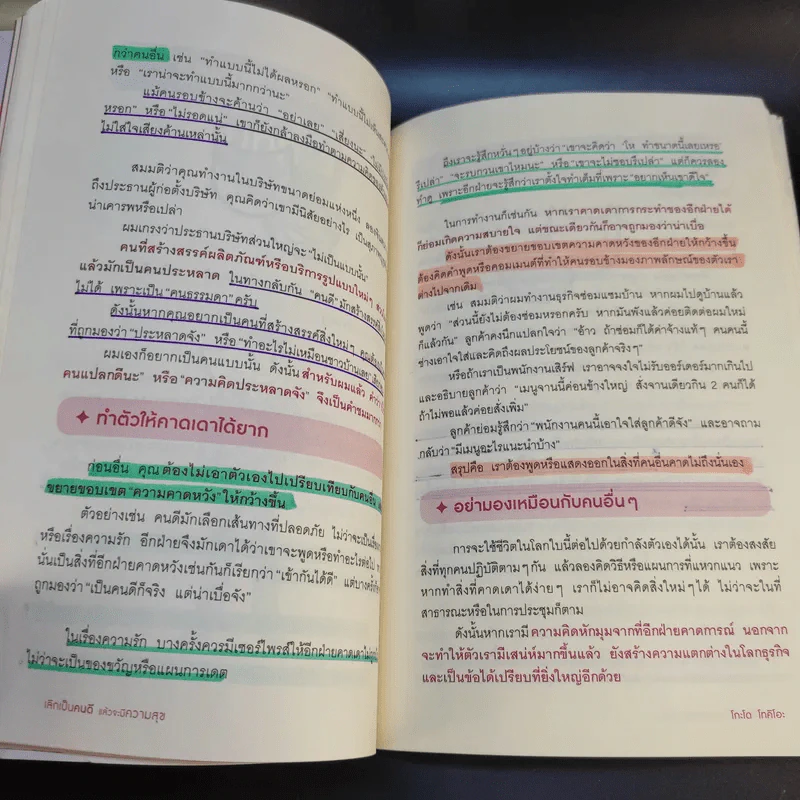 กว่าคนอื่น เช่น “ทำแบบนี้ไม่ได้ผลหรอก” “ทำแบบนี้
หรือ “เราน่าจะทำแบบนี้มากกว่านะ”
แม้คนรอบข้างจะค้านว่า “อย่าเลย” “เสี่ยงนะ”
หรอก” หรือ “ไม่รอดแน่” เขาก็ยังกล้าลงมือทำตามความคิด
ไม่ใส่ใจเสียงค้านเหล่านั้น
สมมติว่าคุณทำงานในบริษัทขนาดย่อมแห่งหนึ่ง
ถึงประธานผู้ก่อตั้งบริษัท คุณคิดว่าเขามีนิสัยอย่างไร
น่าเคารพหรือเปล่า
ผมเกรงว่าประธานบริษัทส่วนใหญ่จะ “ไม่เป็นแบบนั้น”
คนที่สร้างสรรค์ผลิตภัณฑ์หรือบริการรูปแบบใหม่ๆ
แล้วมักเป็นคนประหลาด ในทางกลับกัน “คนดี” มักสร้าง
ไม่ได้ เพราะเป็น “คนธรรมดา” ครับ
ดังนั้นหากคุณอยากเป็นคนที่สร้างสรรค์สิ่งใหม่ๆ
ที่ถูกมองว่า “ประหลาดจัง” หรือ “ทำอะไรไม่เหมือนชาวบ้านเลย”
ผมเองก็อยากเป็นคนแบบนั้น ดังนั้น สำหรับผมแล้ว
คนแปลกดีนะ” หรือ “ความคิดประหลาดจัง” จึงเป็นคำชม
ทำตัวให้คาดเดาได้ยาก
ก่อนอื่น คุณต้องไม่เอาตัวเองไปเปรียบเทียบกับคนอื่น
ขยายขอบเขต “ความคาดหวัง” ให้กว้างขึ้น
ตัวอย่างเช่น คนดีมักเลือกเส้นทางที่ปลอดภัย ไม่ว่าจะเป็น
หรือเรื่องความรัก อีกฝ่ายจึงมักเดาได้ว่าเขาจะพูดหรือทำอะไรต่อไป
นั่นเป็นสิ่งที่อีกฝ่ายคาดหวังเช่นกันก็เรียกว่า “เข้ากันได้ดี” แต่บางครั้ง
ถูกมองว่า “เป็นคนดีก็จริง แต่น่าเบื่อจัง”
ในเรื่องความรัก บางครั้งควรมีเซอร์ไพรส์ให้อีกฝ่ายคาดเดา
ไม่ว่าจะเป็นของขวัญหรือแผนการเดต
เลิกเป็นคนดี แล้วจะมีความสุข
ถึงเราจะรู้สึกหวั่นๆ อยู่บ้างว่า “เขาจะคิดว่า ‘โห ทำขนาดนี้เลยเหรอ’
รึเปล่า” “จะรบกวนเขาไหมนะ” หรือ “เขาจะไม่ชอบรึเปล่า” แต่ก็ควรลอง
ทำดู เพราะอีกฝ่ายจะรู้สึกว่าเราตั้งใจทำเต็มที่เพราะ “อยากเห็นเขาดีใจ”
ในการทำงานก็เช่นกัน หากเราคาดเดาการกระทำของอีกฝ่ายได้
ก็ย่อมเกิดความสบายใจ แต่ขณะเดียวกันก็อาจถูกมองว่าน่าเบื่อ
ดังนั้นเราต้องขยายขอบเขตความคาดหวังของอีกฝ่ายให้กว้างขึ้น
ต้องคิดคำพูดหรือคอมเมนต์ที่ทำให้คนรอบข้างมองภาพลักษณ์ของตัวเรา
ต่างไปจากเดิม
เช่น สมมติว่าผมทำงานธุรกิจซ่อมแซมบ้าน หากผมไปดูบ้านแล้ว
พูดว่า “ส่วนนี้ยังไม่ต้องซ่อมหรอกครับ หากมันพังแล้วค่อยติดต่อผมใหม่
ก็แล้วกัน” ลูกค้าคงนึกแปลกใจว่า “อ้าว ถ้าซ่อมก็ได้ค่าจ้างแท้ๆ คนคนนี้
ช่างเอาใจใส่และคิดถึงผลประโยชน์ของลูกค้าจริงๆ”
หรือถ้าเราเป็นพนักงานเสิร์ฟ เราอาจจงใจไม่รับออร์เดอร์มากเกินไป
และอธิบายลูกค้าว่า “เมนูจานนี้ค่อนข้างใหญ่ สั่งจานเดียวกิน 2 คนก็ได้
ถ้าไม่พอแล้วค่อยสั่งเพิ่ม”
ลูกค้าย่อมรู้สึกว่า “พนักงานคนนี้เอาใจใส่ลูกค้าดีจัง” และอาจถาม
กลับว่า “มีเมนูอะไรแนะนำบ้าง”
สรุปคือ เราต้องพูดหรือแสดงออกในสิ่งที่คนอื่นคาดไม่ถึงนั่นเอง
อย่ามองเหมือนกับคนอื่นๆ
การจะใช้ชีวิตในโลกใบนี้ต่อไปด้วยกำลังตัวเองได้นั้น เราต้องสงสัย
สิ่งที่ทุกคนปฏิบัติตามๆ กัน แล้วลองคิดวิธีหรือแผนการที่แหวกแนว เพราะ
หากทำสิ่งที่คาดเดาได้ง่ายๆ เราก็ไม่อาจคิดสิ่งใหม่ๆ ได้ ไม่ว่าจะในที่
สาธารณะหรือในการประชุมก็ตาม
ดังนั้นหากเรามีความคิดหักมุมจากที่อีกฝ่ายคาดการณ์ นอกจาก
จะทำให้ตัวเรามีเสน่ห์มากขึ้นแล้ว ยังสร้างความแตกต่างในโลกธุรกิจ
และเป็นข้อได้เปรียบที่ยิ่งใหญ่อีกด้วย
โกะโด โทคิโอะ